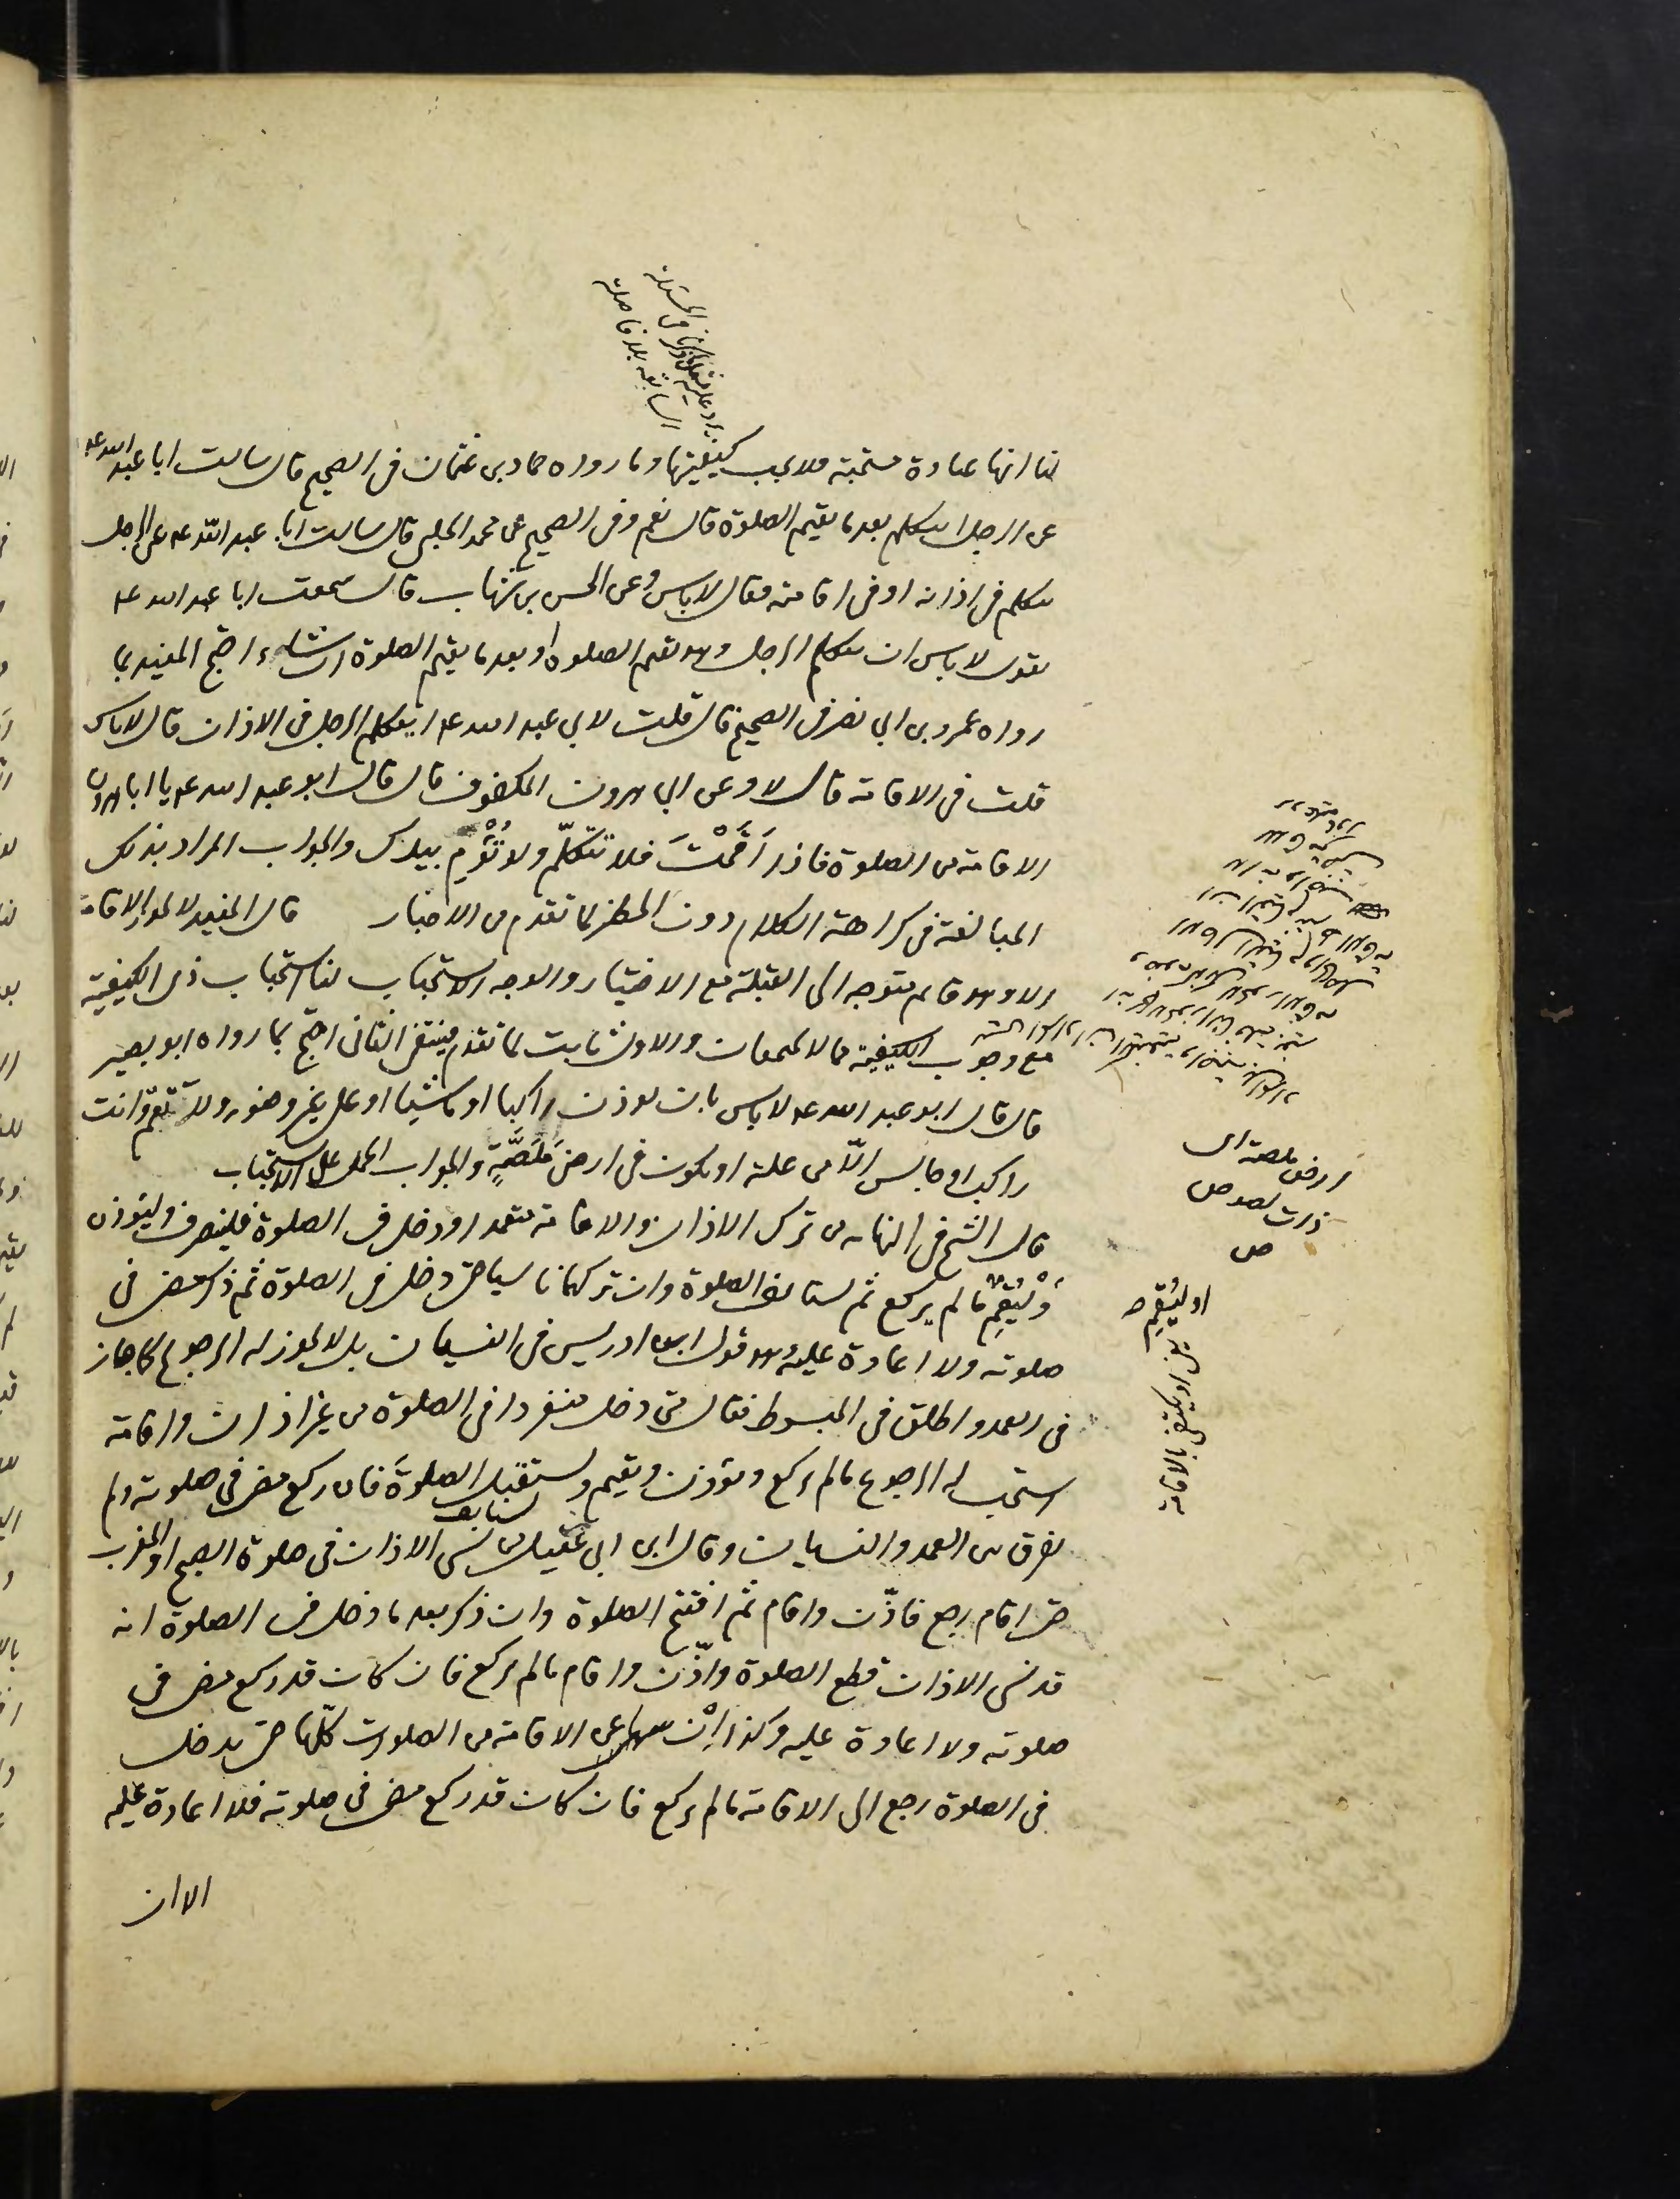 لنا انها عبادة مستحبة فلا يجب كيفيتها وما رواه حماد بن عثمان في الصحيح قال سالت ابا عبد الله عه
عن الرجل ايتكلم بعد ما يقيم الصلوة قال نعم وفي الصحيح عن محمد الحلبي قال سالت ابا عبد الله عه عن الرجل
يتكلم في اذانه او في اقامته فقال لا باس وعن الحسن بن شهاب قال سمعت ابا عبد الله عه
يقول لا باس ان يتكلم الرجل وهو يقيم الصلوة او بعد ما يقيم الصلوة ان شاء احتج المفيد بما
رواه عمرو بن ابي نصر في الصحيح قال قلت لابي عبد الله عه ايتكلم الرجل في الاذان قال لا باس
قلت في الاقامة قال لا وعن ابي هرون المكفوف قال قال ابو عبد الله عه يا ابا هرون
الاقامة من الصلوة فاذا اَقَمْتَ فلا تتكلّم ولا تُؤْمِ بيدك والجواب المراد بذلك
المبالغة في كراهة الكلام دون الحظر لما تقدم من الاخبار قال المفيد لا يجوز الاقامة
الا وهو قائم متوجه الى القبلة مع الاختيار والوجه الاستحباب لنا استحباب ذي الكيفية
مع وجوب الكيفية مما لا يجتمعان والاول ثابت لما تقدم فينتفي الثاني احتج بما رواه ابو بصير
قال قال ابو عبد الله عه لا باس بان توذن راكبا او ماشيا او على غير وضوء ولا تقم وانت
راكب او جالس الّا من علة او تكون في ارض مَلَصَّةٍ والجواب الحمل على الاستحباب
قال الشيخ في النهاية من ترك الاذان والاقامة متعمدا ودخل في الصلوة فلينصرف وليؤذن
وَلْيُقِمْ ما لم يركع ثم يستانف الصلوة وان تركهما ناسيا حتى دخل في الصلوة ثم ذكر مضى في
صلوته ولا اعادة عليه وهو قول ابن ادريس في النسيان بل لا يجوز له الرجوع كما جاز
في العمد واطلق في المبسوط فقال متى دخل منفردا في الصلوة من غير اذان واقامة
استحب له الرجوع ما لم يركع ويؤذن ويقيم ويستقبل الصلوةَ فان ركع مضى في صلوته ولم
يفرق بين العمد والنسيان وقال ابن ابي عقيل من نسي الاذان في صلوة الصبح او المغرب
حتى اقام رجع فاذّن واقام ثم افتتح الصلوة وان ذكر بعد ما دخل في الصلوة انه
قد نسي الاذان قطع الصلوة واذّن واقام ما لم يركع فان كان قد ركع مضى في
صلوته ولا اعادة عليه وكذا اِنْ سها عن الاقامة من الصلوات كلّها حتى يدخل
في الصلوة رجع الى الاقامة ما لم يركع فان كان قد ركع مضى في صلوته فلا اعادة عليه
الا ان
ارض ملصة اى
ذات لصوص
ص
او ليُقِم
يعني او يكتفي بالاقامة
السابقة بلا فاصلة